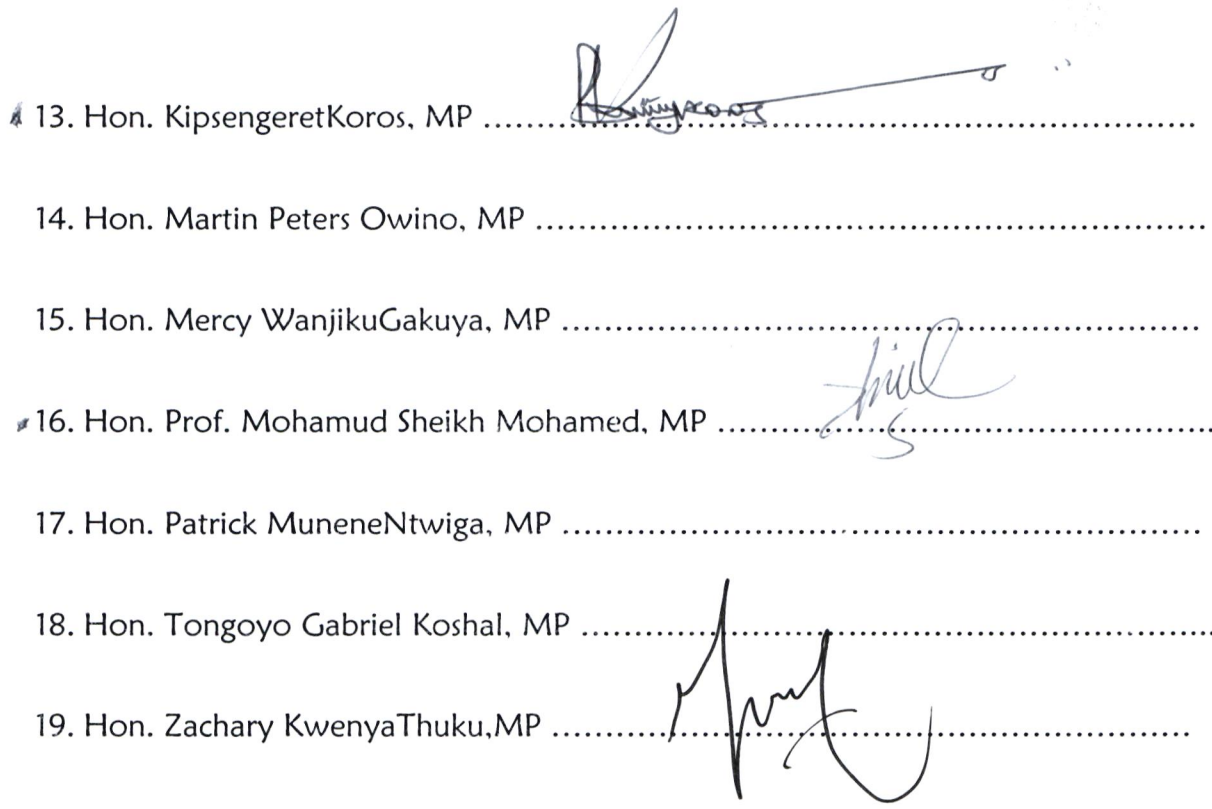 13. Hon. KipsengeretKoros, MP ..........................................................................
14. Hon. Martin Peters Owino, MP ......................................................................
15. Hon. Mercy WanjikuGakuya, MP ...................................................................
16. Hon. Prof. Mohamud Sheikh Mohamed, MP ....................................................
17. Hon. Patrick MuneneNtwiga, MP ...................................................................
18. Hon. Tongoyo Gabriel Koshal, MP ..................................................................
19. Hon. Zachary KwenyaThuku,MP ...................................................................